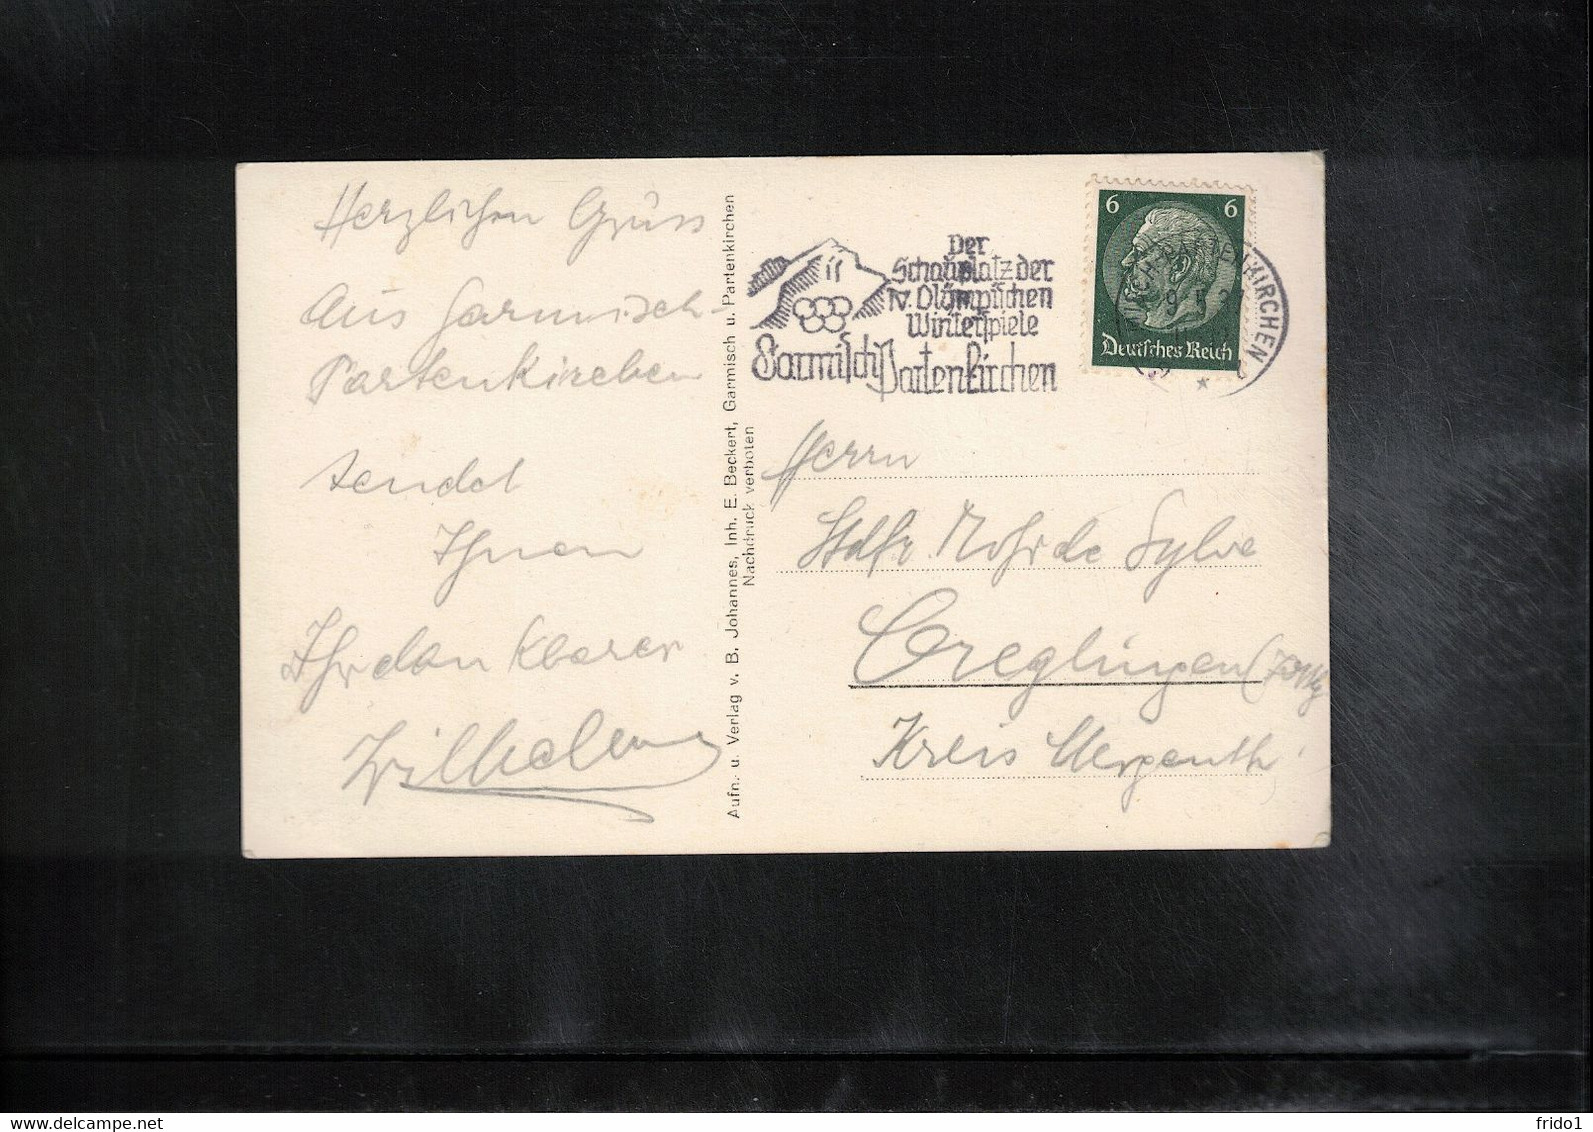 Herzlichen Grüss
Aus Garmisch-
Partenkirchen
sendet
Ihnen
Ihr dankbarer
Wilhelm
Aufn. u. Verlag v. B. Johannes, Inh. E. Beckert, Garmisch u. Partenkirchen
Nachdruck verboten
Der
Schauplatz der
IV. Olÿmpischen
Winterspiele
Garmisch-Partenkirchen
6 6
Deutsches Reich
PARTENKIRCHEN
Herrn
Creglingen
Kreis Mergenth
frido1